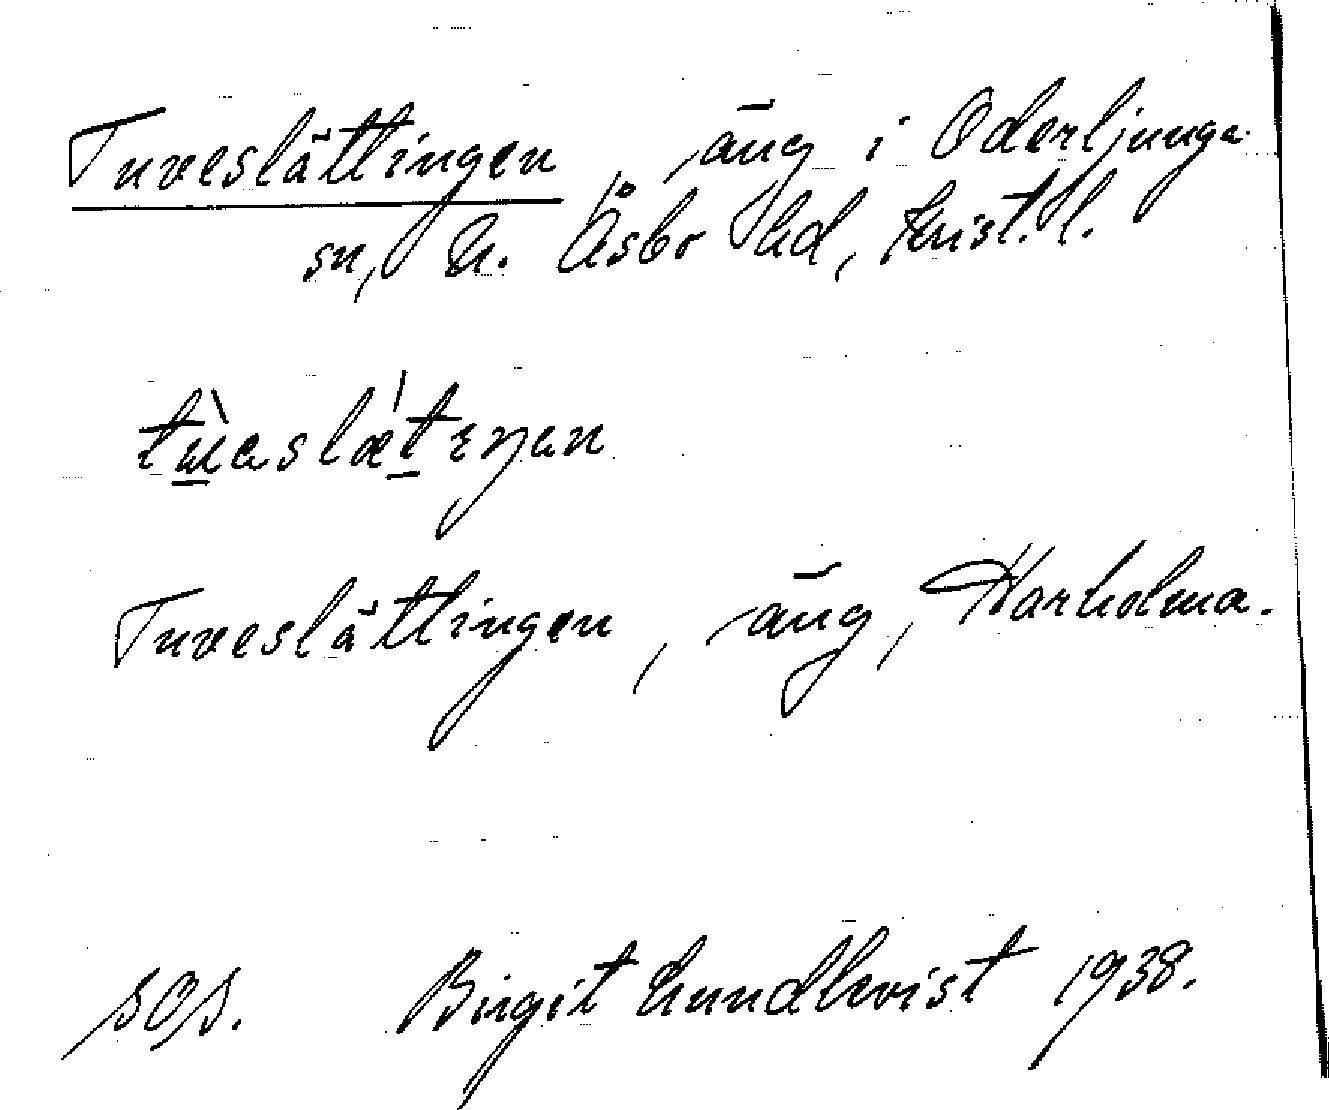 Tuveslättingen, äng i Oderljunga
sn, N. Åsbo hd, Krist. l.
Tuveslättingen, äng, Harholma.
SOS. Birgit Lundkvist 1938.